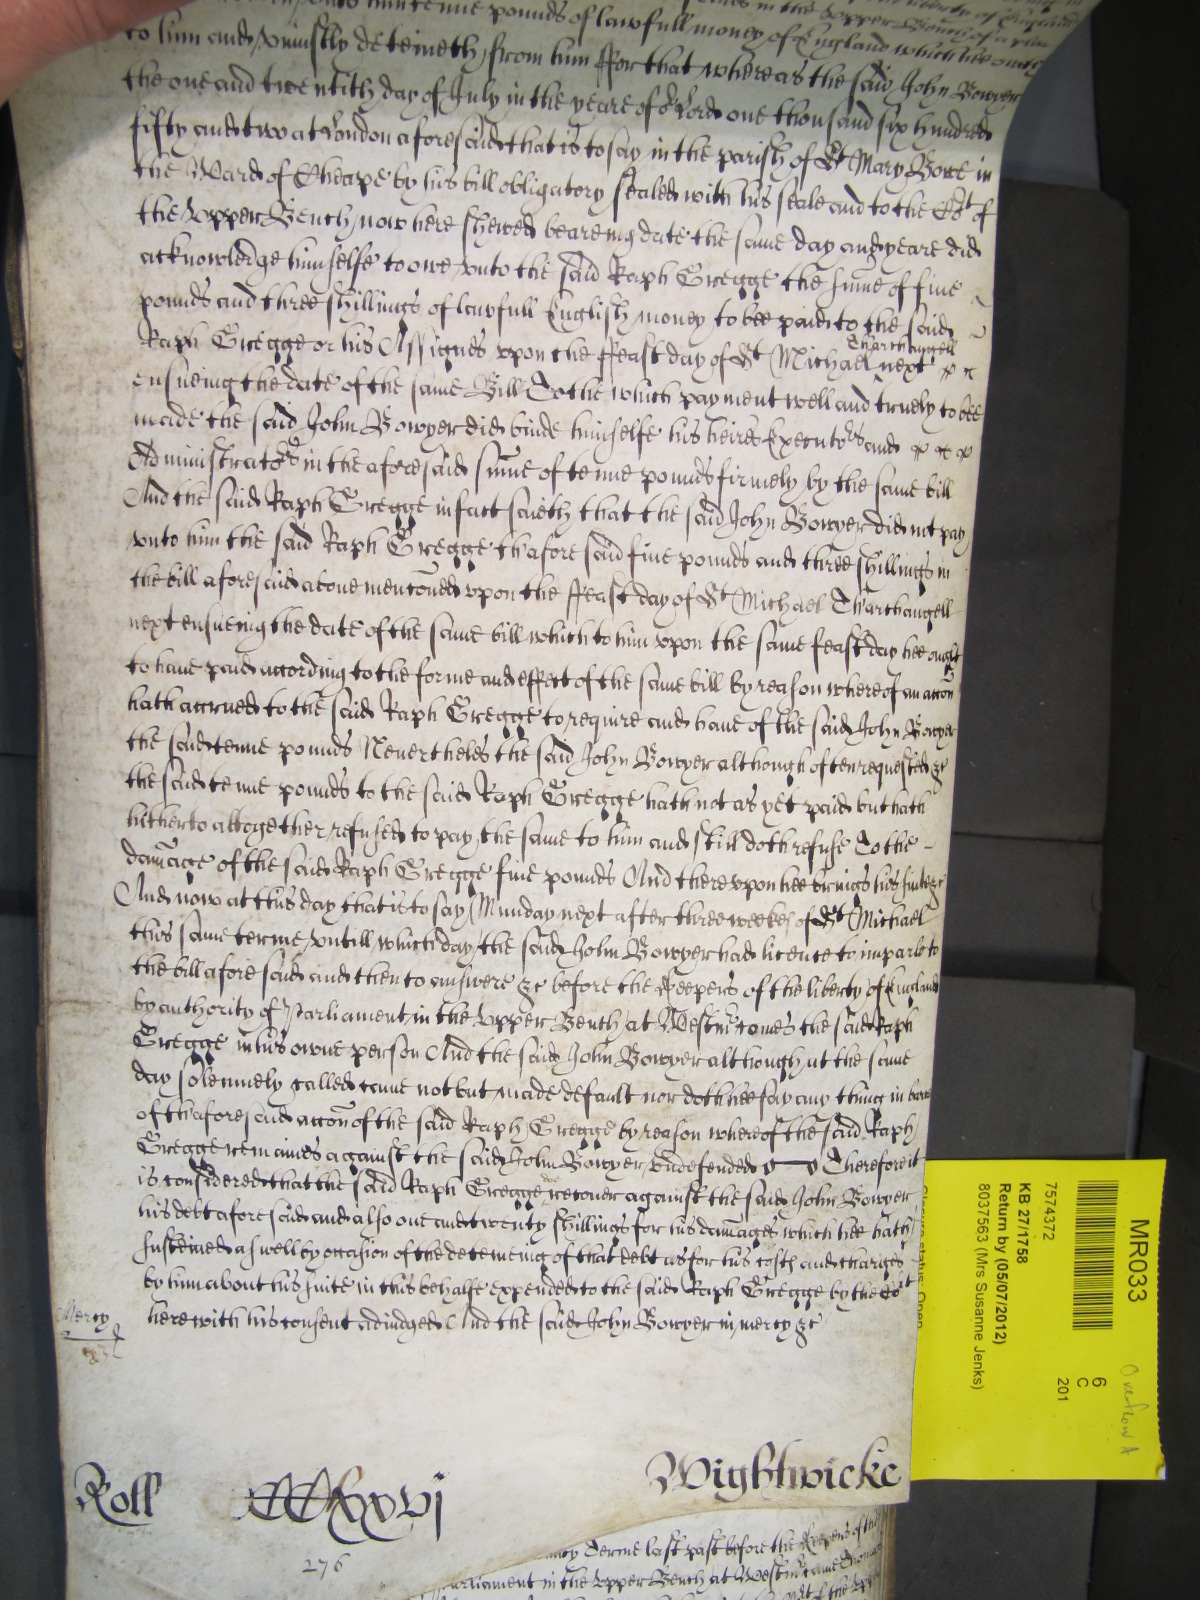 unto him tenne pounds of lawfull money of England which hee oweth
to him and uniustly deteineth from him ffor that whereas the said John Bowyer
the one and twentith day of July in the yeare of or Lord one thousand six hundred
fifty and two at London aforesaid that is to say in the parish of St Mary Bowe in
the Ward of Cheape by his bill obligatory sealed with his seale and to the Cort of
the Upper Bench now here shewed beareing date the same day and yeare did
acknowledge himselfe to owe unto the said Raph Gregge the sume of five
pounds and three shillings of lawfull English money to bee paid to the said
Raph Gregge or his Assignes upon the ffeast day of St Michael Tharchangell next
ensueing the date of the same Bill To the which payment well and truely to bee
made the said John Bowyer did binde himselfe his heires Executors and
Administrators in the aforesaid sume of tenne pounds firmely by the same bill
And the said Raph Gregge in fact saieth that the said John Bowyer did not pay
unto him the said Raph Gregge thaforesaid five pounds and three shillings in
the bill aforesaid above menconed upon the ffeast day of St Michael Tharchangell
next ensueing the date of the same bill which to him upon the same feast day hee ought
to have paid according to the forme and effect of the same bill by reason whereof an accon
hath accrued to the said Raph Gregge to require and have of the said John Bowyer
the said tenne pounds Nevertheles the said John Bowyer although often requested &c
the said tenne pounds to the said Raph Gregge hath not as yet paid but hath
hitherto altogether refused to pay the same to him and still doth refuse To the
damage of the said Raph Gregge five pounds And thereupon hee brings his suite &c
And now at this day that is to say Munday next after three weekes of St Michael
this same terme untill which day the said John Bowyer had licence to imparle to
the bill aforesaid and then to answere &c before the Keepers of the liberty of England
by authority of Parliament in the Upper Bench at Westmr comes the said Raph
Gregge in his owne person And the said John Bowyer although at the same
day solemnely called came not but made default nor doth hee say any thing in barre
of thaforesaid accon of the said Raph Gregge by reason whereof the said Raph
Gregge remaines against the said John Bowyer undefended Therefore it
is considered that the said Raph Gregge doe recover against the said John Bowyer
his debt aforesaid and also one and twenty shillings for his damages which hee hath
susteined aswell by occasion of the deteineing of that debt as for his costs and charges
by him about his suite in this behalfe expended to the said Raph Gregge by the Cort
Mercy
here with his consent adiudged And the said John Bowyer in mercy &c
Roll CCClxxvj Wightwicke
276
Terme last past before the Keepers of the
Parliament in the Upper Bench at Westmr came
MR033
Overflow A
6
C
201
7574372
KB 27/1758
Return by (05/07/2012)
8037563 (Mrs Susanne Jenks)